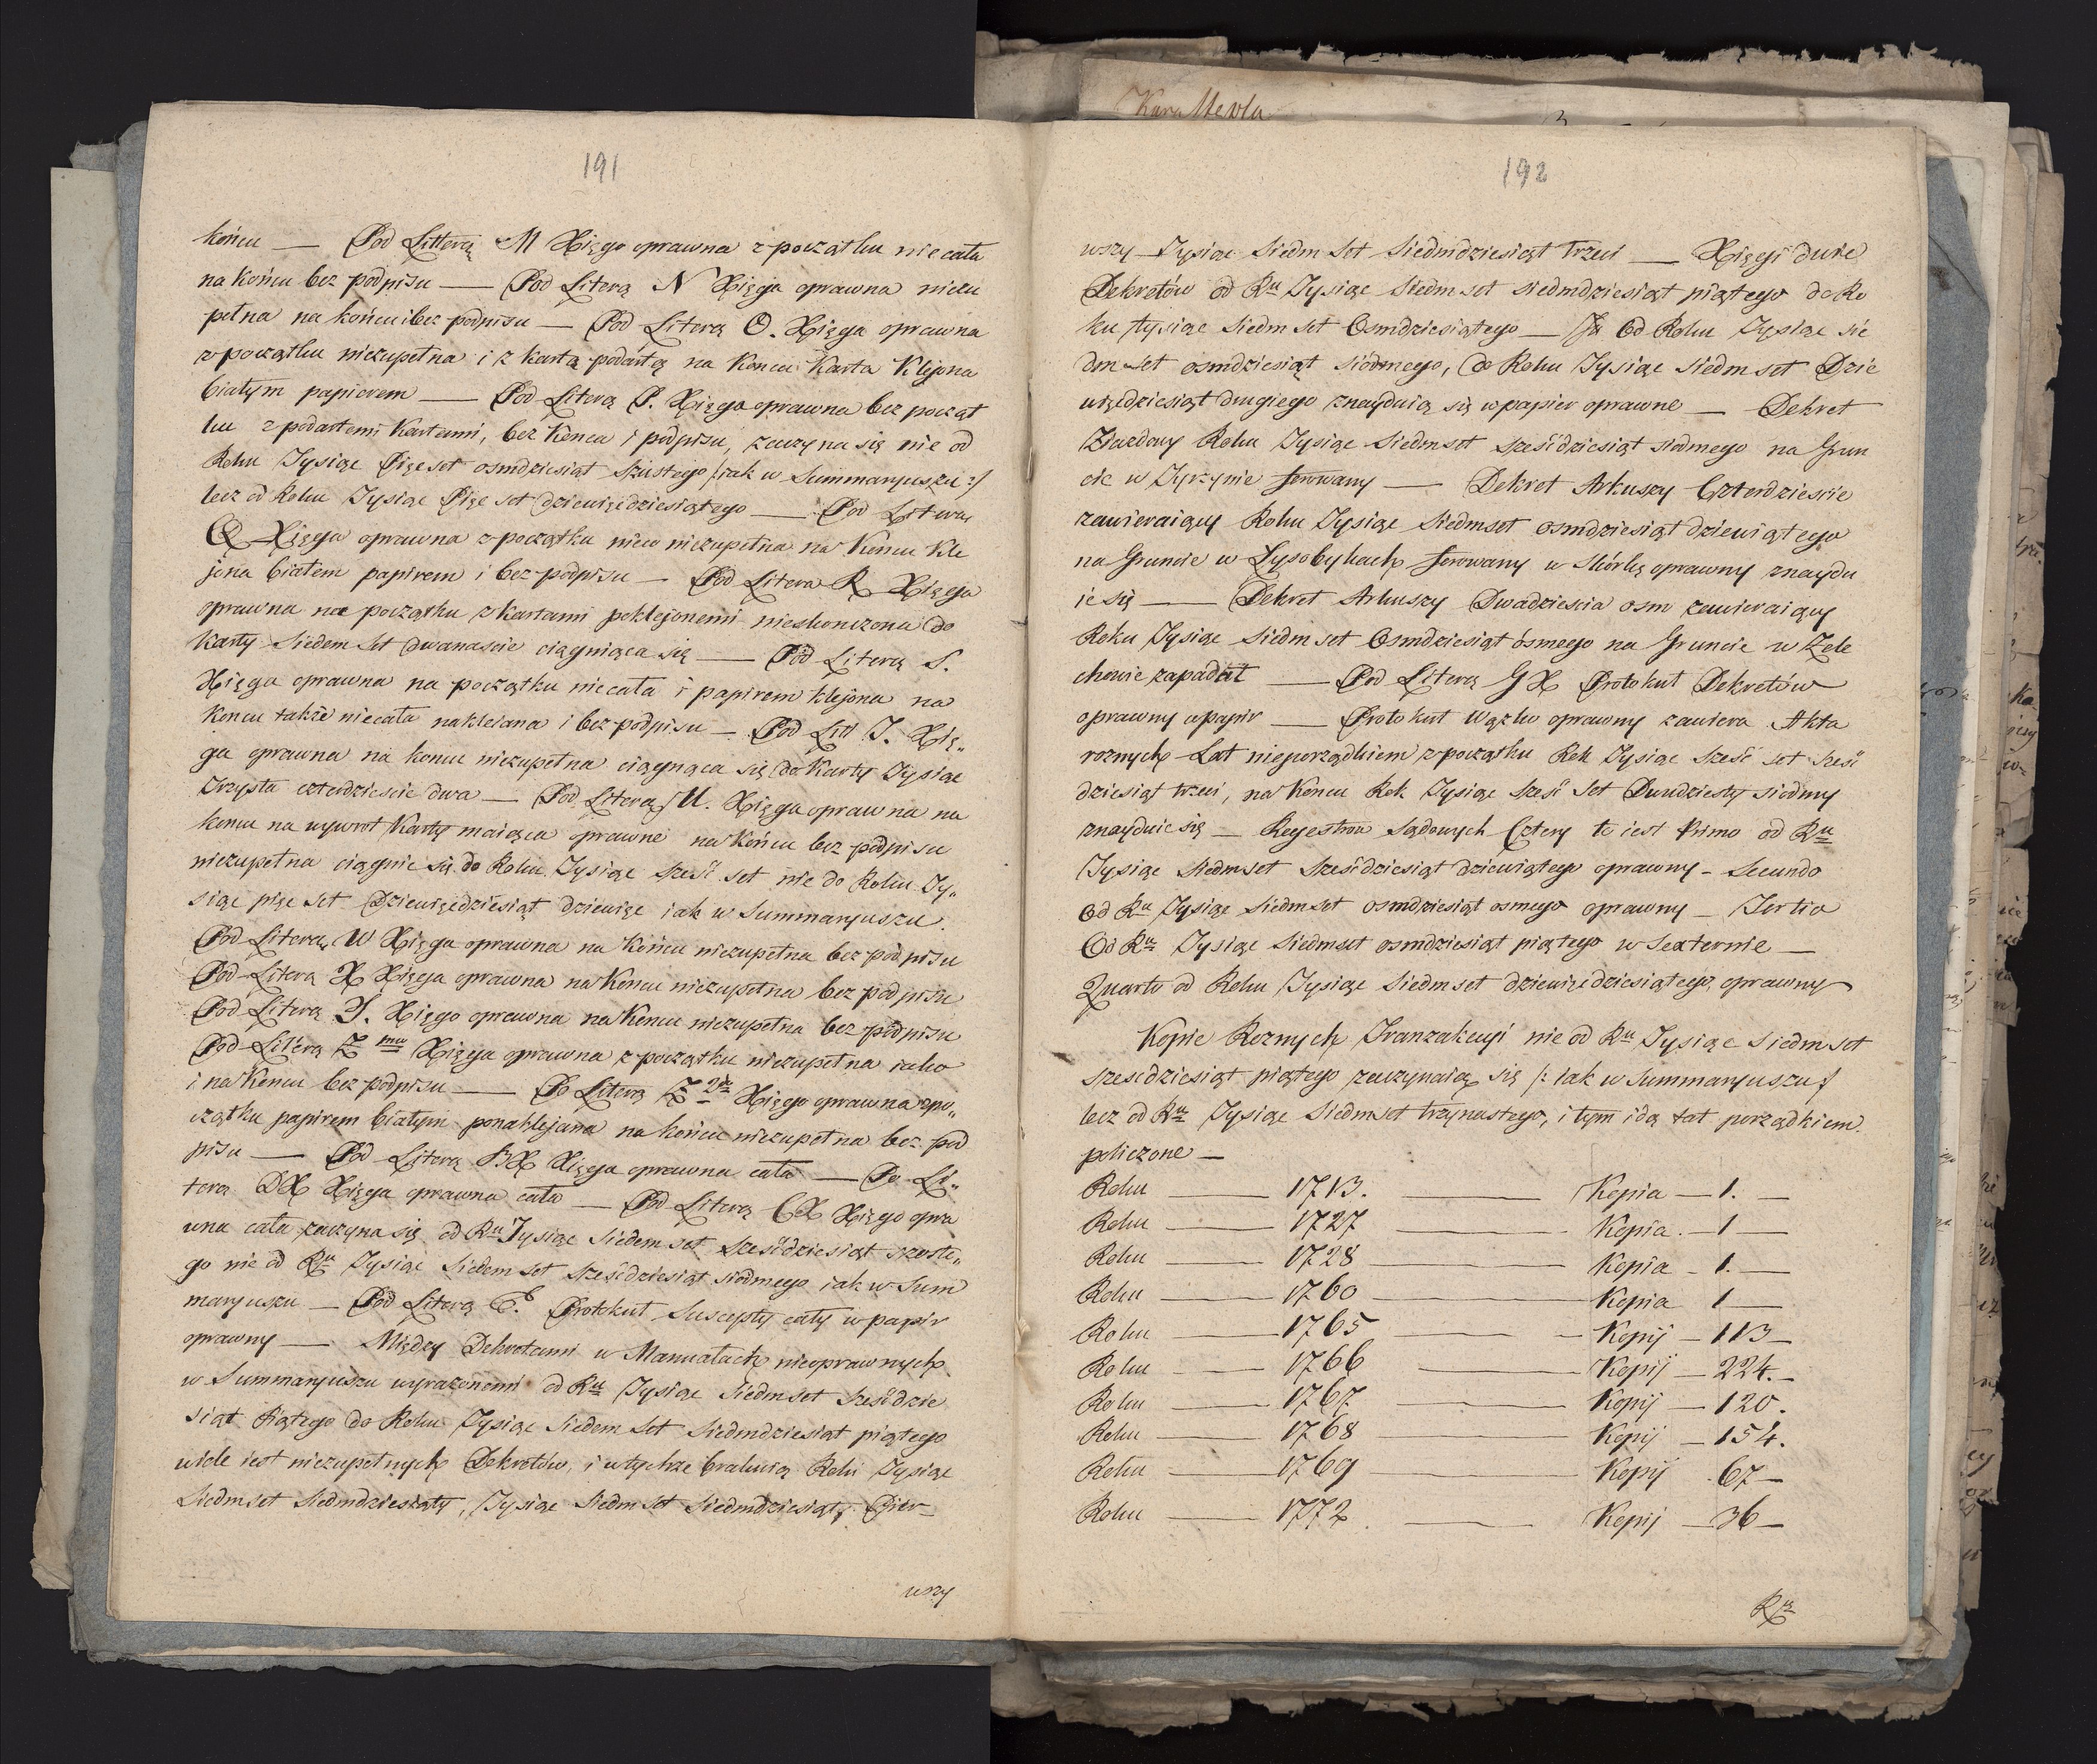 191
końcu — Pod Litterą M Xięga oprawna z początku nie cała
na końcu bez podpisu — Pod Literą N Xięga oprawna niezu
pełna na końcu i bez podpisu — Pod Literą O. Xięga oprawna
z początku niezupełna i z kartą podartą na końcu Karta Klejona
białym papierem — Pod Literą P. Xięga oprawna bez począt
ku z podartemi Kartami, bez Końca i podpisu, zaczyna się nie od
Roku Tysiąc Pięćset osmdziesiąt szustego /: iak w Summaryuszu :/
lecz od Roku Tysiąc Pięć set dziewięćdziesiątego — Pod Literą
Q Xięga oprawna z początku nieco niezupełna na Końcu Kle
jona białem papirem i bez podpisu — Pod Litera R Xięga
oprawna na początku z Kartami poklejonemi nieskonczona do
Karty Siedem Set dwanaście ciągniąca się — Pod Literą S.
Xięga oprawna na początku niecała i papirem klejona na
Koncu także niecała naklejana i bez podpisu — Pod Litt T. Xię„
ga oprawna na koncu niezupełna ciągnąca się do Karty Tysiąc
Trzysta czterdzieście dwa — Pod Literą U. Xięga oprawna na
koncu na wywrot Karty maiąca oprawne na Końcu bez podpisu
niezupełna ciągnie się do Roku Tysiąc sześć set nie do Roku Ty„
siąc pięć set Dziewięćdziesiąt dziewięć iak w Summaryuszu.
Pod Literą W Xięga oprawna na Końcu niezupełna bez podpisu
Pod Literą X Xięga oprawna na Końcu niezupełna bez podpisu
Pod Literą Y. Xięga oprawna na Końcu niezupełna bez podpisu
Pod Literą Z Xięga oprawna z początku niezupełna iako
i na Końcu bez podpisu — Po Literą Z 2da Xięga oprawna z po„
czątku papirem białym ponaklejana na końcu niezupełna bez pod
pisu — Pod Literą BX Xięga oprawna cała — Po Li„
terą DX Xięga oprawna cała — Pod Literą CX Xięga opra
wna cała zaczyna się od Ru Tysiąc Siedem set sześćdziesiąt szoste„
go nie od Ru Tysiąc Siedem set sześćdziesiąt siodmego iak w Sum
maryuszu — Pod Literą E. Protokuł Suscepty cały w papir
oprawny — Między Dekretami w Manuałach nieoprawnych
w Summaryuszu wyrażonemi od Ru Tysiąc Siedmset sześćdzie
siąt Piątego do Roku Tysiąc Siedem Set Siedmdziesiąt piątego
wiele iest niezupełnych Dekretów, i w tychże brakuią Roki Tysiąc
Siedmset Siedmdziesiąty, Tysiąc Siedm Set Siedmdziesiąty Pier-
wszy
192
wszy Tysiąc Siedm Set Siedmdziesiąt trzeci — Xięgi dwie
Dekretów od Ru Tysiąc Siedm set siedmdziesiąt piątego do Ro
ku tysiąc Siedm set Osmdziesiątego — Od Roku Tysiąc sie
dm set osmdziesiąt siodmego, do Roku Tysiąc Siedm set Dzie
więćdziesiąt drugiego znayduią się w papier oprawne — Dekret
Zjazdowy Roku Tysiąc Siedmset sześćdziesiąt siodmego na Grun
cie w Tyrzynie ferowany — Dekret Arkuszy Czterdzieście
zawieraiący Roku Tysiąc Siedmset osmdziesiąt dziewiątego
na Gruncie w Łysobykach ferowany w skórkę oprawny znaydu
ie się — Dekret Arkuszy Dwadzieścia osm zawieraiący
Roku Tysiąc Siedm set Osmdziesiąt ósmego na Gruncie w Żele
chowie zapadał — Pod Literą GX Protokuł Dekretów
oprawny w papir — Protokuł Wązko oprawny zawiera Akta
roznych Lat nieporządkiem z początku Rok Tysiąc sześć set sześć
dziesiąt trzeci, na Końcu Rok Tysiąc sześć Set Dwudziesty siodmy
znayduie się — Regestrow Sądowych Cztery to iest Primo od Ru
Tysiąc Siedmset sześćdziesiąt dziewiątego oprawny — Secundo
od Ru Tysiąc Siedmset osmdziesiąt osmego oprawny — Tertio
Od Ru Tysiąc Siedmset osmdziesiąt piątego w Sexternie —
Quarto od Roku Tysiąc Siedmset dziewięćdziesiątego, oprawny
Kopie Roznych Tranzakcyi nie od Ru Tysiąc Siedmset
szescdziesiąt piątego zaczynaią się /: iak w Summaryuszu /
lecz od Ru Tysiąc Siedmset trzynastego, i tym idą lat porządkiem
policzone —
Roku — 1713. — Kopia — 1. —
Roku — 1727 — Kopia. — 1 —
Roku — 1728 — Kopia — 1. —
Roku — 1760 — Kopia 1 —
Roku — 1765 — Kopij — 113 —
Roku — 1766 — Kopij — 224. —
Roku — 1767 — Kopij — 120.
Roku — 1768 — Kopij — 154.
Roku — 1769 — Kopij 67 —
Roku — 1772 — Kopij — 36 —
Ru